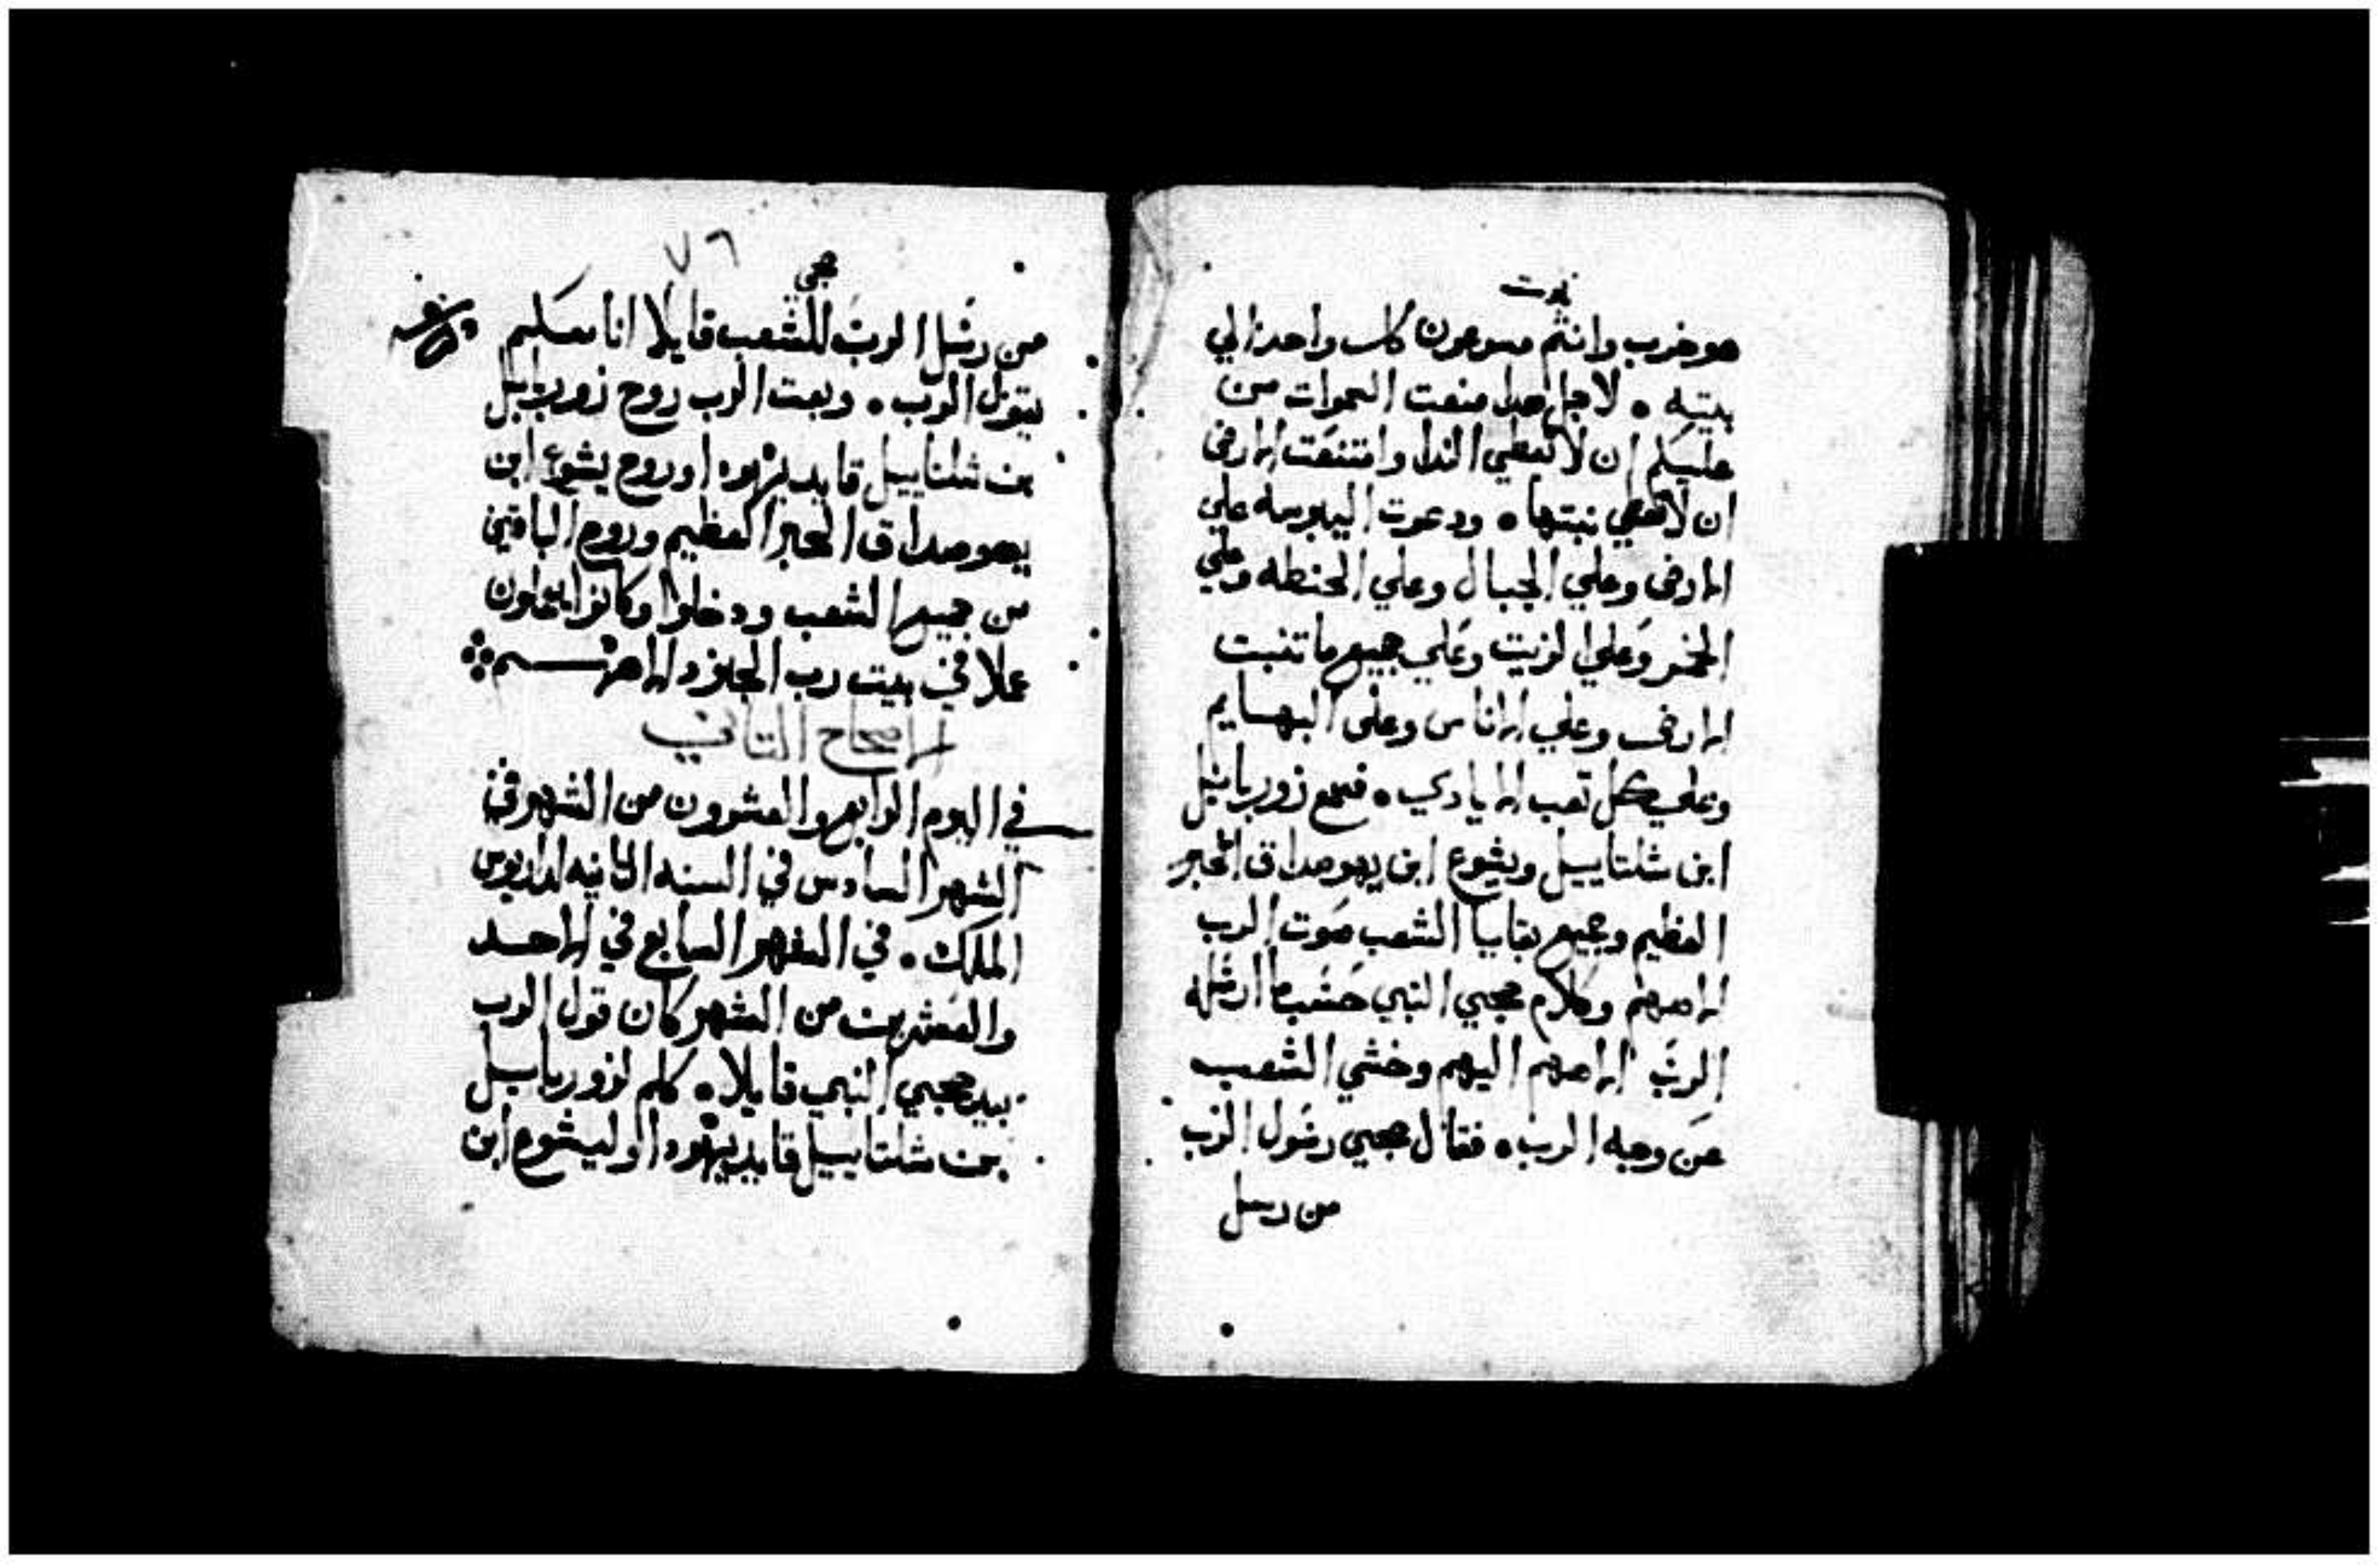 نبوت
هو خرب وانتم مسرعون كل واحد الي
بيته ۰ لاجل هدا منعت السموات من
عليكم ان لا تعطي الندا وامتنعت الارض
ان لا تعطي نبتها ۰ ودعوت اليبوسه علي
الارض وعلي الجبال وعلي الحنطه وعلي
الخمر وعلي الزيت وعلي جميع ما تنبت
الارض وعلي الاناس وعلى البهايم
وعلي كل تعب الايادي ۰ فسمع زوربابيل
ابن شلتاييل ويشوع ابن يهوصداق الحبر
العظيم وجميع بقايا الشعب صوت الرب
الاههم وكلام حجي النبي حسب ما ارسله
الرب الاههم اليهم وخشي الشعب
من وجه الرب ۰ فقال حجي رسول الرب
من رسل
حجي
٧٦
من رسل الرب للشعب قايلا انا معكم
يقول الرب ۰ وبعت الرب روح زوربابل
بن شلتاييل قايد يهودا وروح يشوع ابن
يهوصداق الحبر العظيم وروح الباقين
من جميع الشعب ودخلوا وكانوا يعملون
عملا في بيت رب الجنود الاههم
الاصحاح التاني
في اليوم الرابع والعشرون من الشهر في
الشهر السادس في السنه التانيه لداريوس
الملك ۰ في الشهر السابع في الاحد
والعشرين من الشهر كان قول الرب
بيد حجي النبي قايلا ۰ كلم لزوربابيل
بن شلتاييل قايد يهودا وليشوع ابن